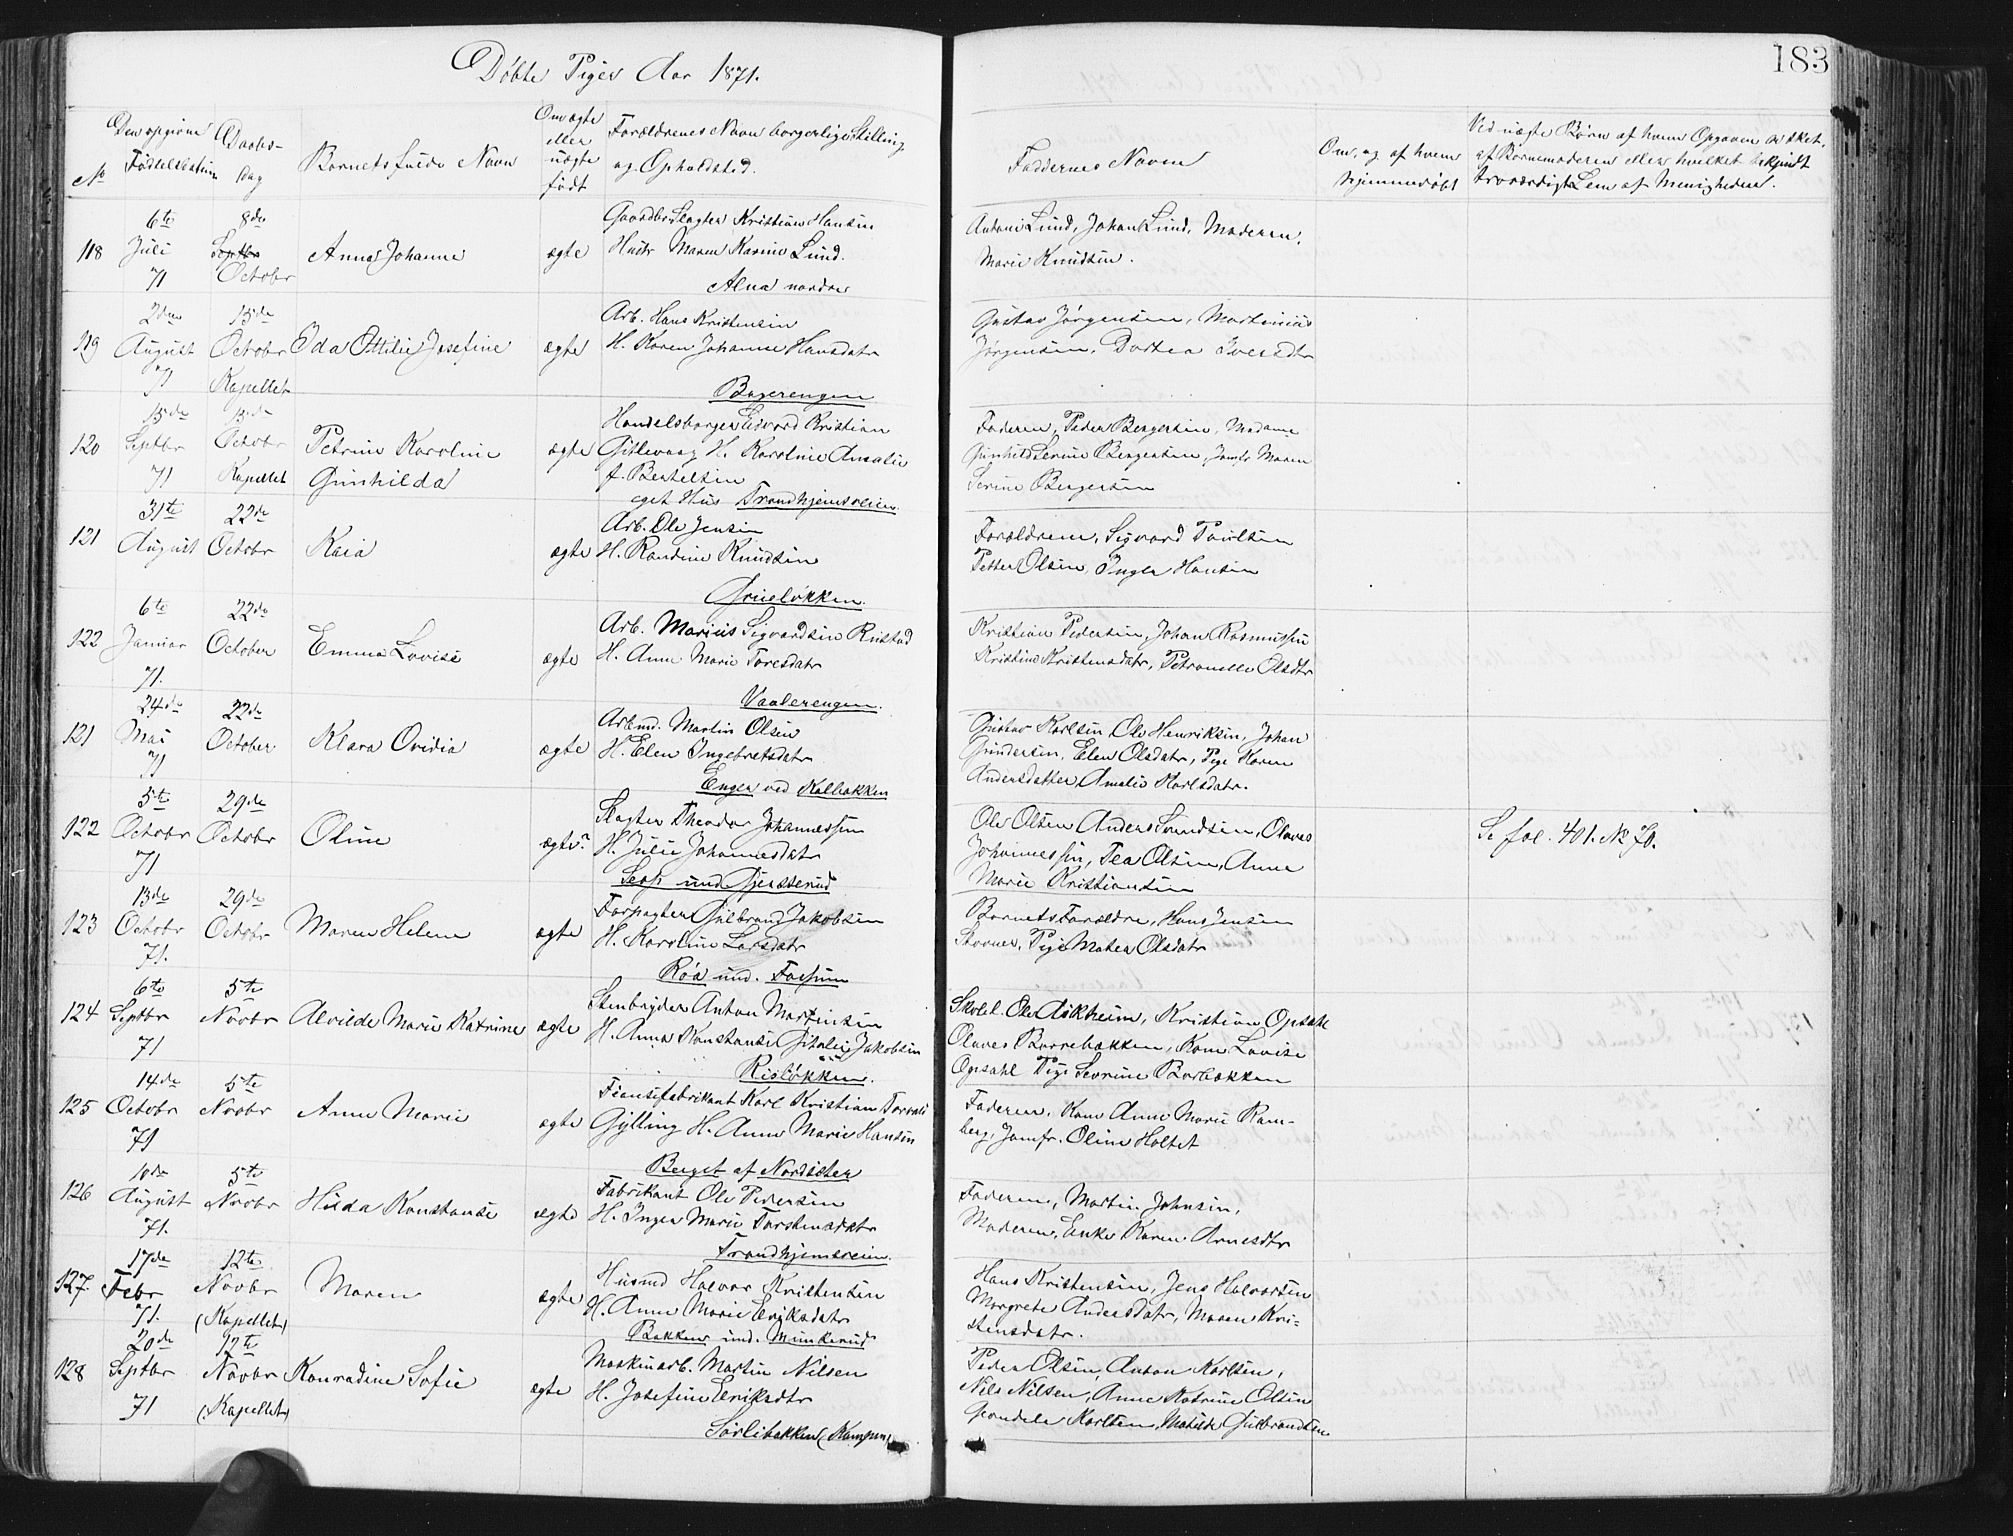 Døbte Piger Aar 1871.
183
No
Den opgivne Fødselsdatum
Daabs-Dag
Barnets fulde Navn
Om ægte eller uægte født
Forældrenes Navn borgerlige Stilling og Opholdsted.
Faddernes Navne
Om, og af hvem hjemmedøbt
Ved uægte Børn af hvem Opgaven er sket, af Barnemoderen eller hvilket bekjendt troværdigt Lem af Menigheden.
118
6te Juli 71
8de Septbr October
Anna Johanne
ægte
Gaardbr Slagter Kristian Hansen
Hustr Maren Karine Lund.
Alna nordre
Antoni Lund, Johan Lund, Moderen,
Marie Knudsen.
119
2den August 71
15de October Kapellet
Ida Ottilie Josefine
ægte
Arb. Hans Kristensen
H. Karen Johanne Hansdatr
Bagerengen
Gustav Jørgensen, Martinius
Jørgensen, Dortea Iversdtr
120
15de Septbr 71
15de Octobr Kapellet
Petrine Karoline
Gunhilda
ægte
Handelsborger Edvard Kristian
Gitlevaag H. Karoline Amalie
f. Bertelsen
eget Hus Trondhjemsveien
Faderen, Peder Bergersen, Madame
Gunhild Serine Bergersen, Jomfr Maren
Serine Bergersen
121
31te August
22de Octobr
Kaia
ægte
Arb. Ole Jensen
H. Randine Knudsen
Grueløkken.
Forældrene, Sigvard Poulsen
Petter Olsen, Inger Hansen
122
6te Januar 71.
22de October
Emma Lovise
ægte
Arb. Marius Sigvardsen Rustad
H. Anne Marie Toresdatr
Vaalerengen.
Kristian Pedersen, Johan Rasmussen
Kristine Kristensdatr, Petronelle Olsdtr
121
24de Mai 71
22de October
Klara Ovidia
ægte
Arbmd. Martin Olsen
H. Elen Ingebretsdatr
Enger ved Kalbakken
Gustav Karlsen, Ole Henriksen, Johan
Gundersen, Elen Olsdatr, Pige Karen
Andersdatter, Amalie Karlsdatr.
122
5te Octobr 71
29de Octobr
Oline
ægte?
Slagter Theodor Johannessen
H. Julie Johannesdatr
Seop und Gjersterud
Ole Olsen Anders Svendsen, Olaves
Johannessen, Tea Olsen, Anne
Marie Kristiansen
Se fol. 401. No 70.
123
13de Octobr 71.
29de Octobr
Maren Helene
ægte
Forpagter Gulbrand Jakobsen
H. Karoline Larsdatr
Røa und. Fossum
Barnets Forældre, Hans Jensen
Storner, Pige Matea Olsdatr
124
6te Septbr 71
5te Novbr
Alvilde Marie Katrine
ægte
Stenbryder Anton Martinsen
H. Anna Konstanse Gitalie Jakobsen
Risløkken.
Skolel. Ole Askheim, Kristian Opsahl
Olaves Borrebækken, Kone Lovise
Opsahl Pige Severine Borbækken
125
14de Octobr 71
5te Novbr
Anne Marie
ægte
Fionisfabrikant Karl Kristian Torvald
Gylling H. Anne Marie Hansen
Berget af Nordseter
Faderen, Kone Anne Marie Ram-
berg, Jomfr. Oline Holtet
126
10de August 71.
5te Novbr
Hilda Konstanse
ægte
Fabrikant Ole Pedersen
H. Inger Marie Torstensdatr
Trondhjemsveien.
Faderen, Martin Johnsen,
Moderen, Enke Karen Arnesdtr
127.
17de Febr 71.
12te Novbr (Kapellet)
Maren
ægte
Husmd Halvor Kristensen
H. Anne Marie Eriksdatr
Bakken und. Munkerud
Hans Kristensen, Jens Halvorsen
Margrete Andersdatr, Maren Kri=
stensdatr.
128
20de Septbr 71
12te Novbr (Kapellet)
Konradine Sofie
ægte
Maskinarb. Martin Nilsen
H. Josefine Eriksdtr
Sørlibakken (Kampen)
Peder Olsen, Anton Karlsen,
Nils Nilsen, Anne Katrine Olsen
Gondele Karlsen, Matilde Gulbrandsen